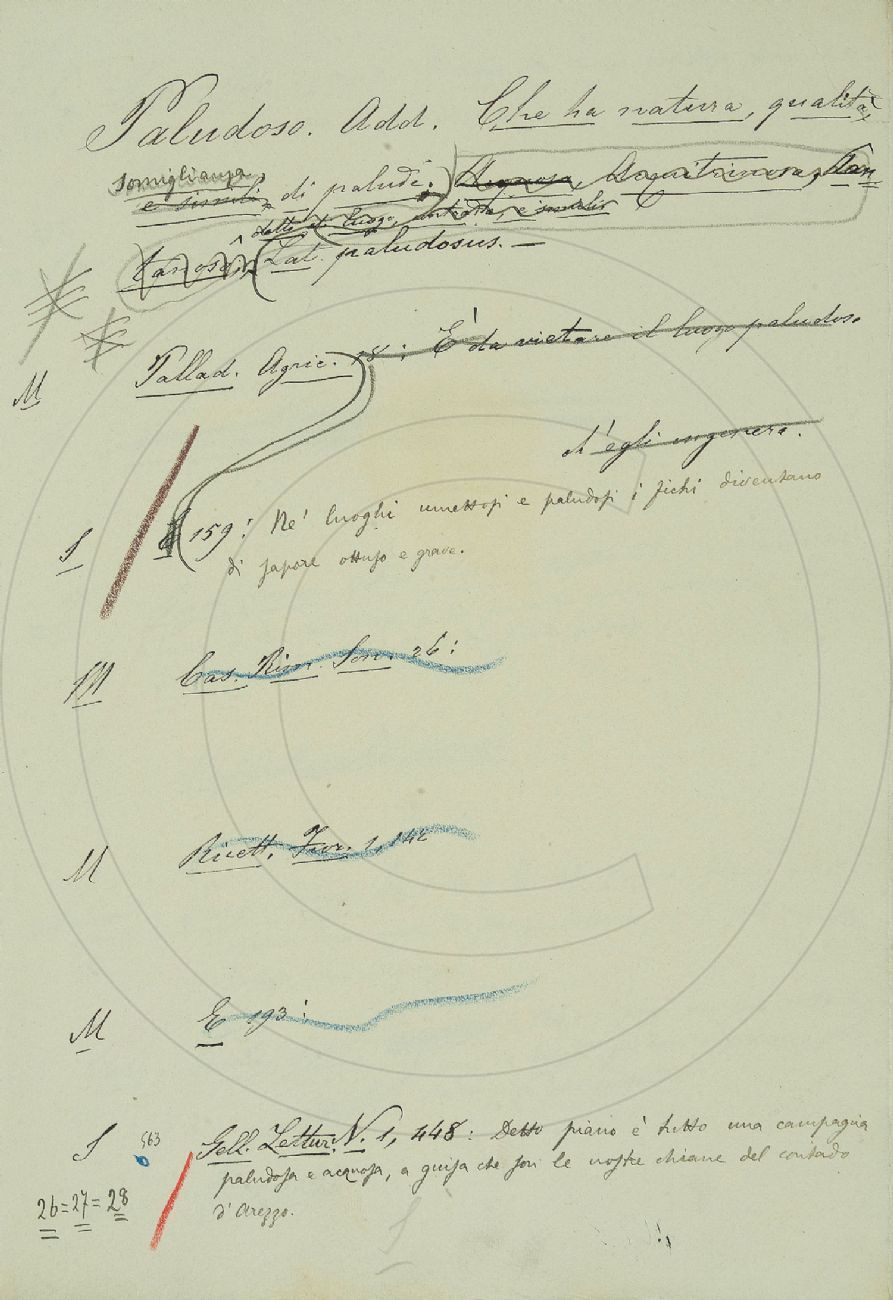 Paludoso. Add. Che ha natura, qualità,
somiglianza
e simili, di palude. Acquosa, Acquitrinosa, Pan
detto di luogo, contrada, e simili
tanosa. Lat. paludosus. —
M Pallad. Agric. 18: È da vietare il luogo paludoso
ch'egli ingenera.
S E 159: Ne' luoghi umettosi e paludosi i fichi diventano
di sapore ottuso e grave.
M Cas. Rim. Son. 26:
M Ricett. Fior. 1, 142
M E 193:
S 563 Gell. Lettur. N. 1, 448: Detto piano è tutto una campagna
paludosa e acquosa, a guisa che son le nostre chiane del contado
26=27=28 d'Arezzo.
S